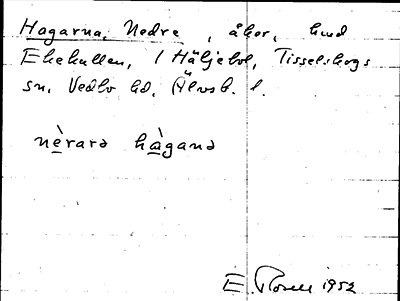 Hagarna, Nedre, åker, hmd
Ekekullen, 1 Häljebol, Tisselskogs
sn, Vedbo hd, Älvsb. l.
nèrarə hàganə
E. Rosell 1952